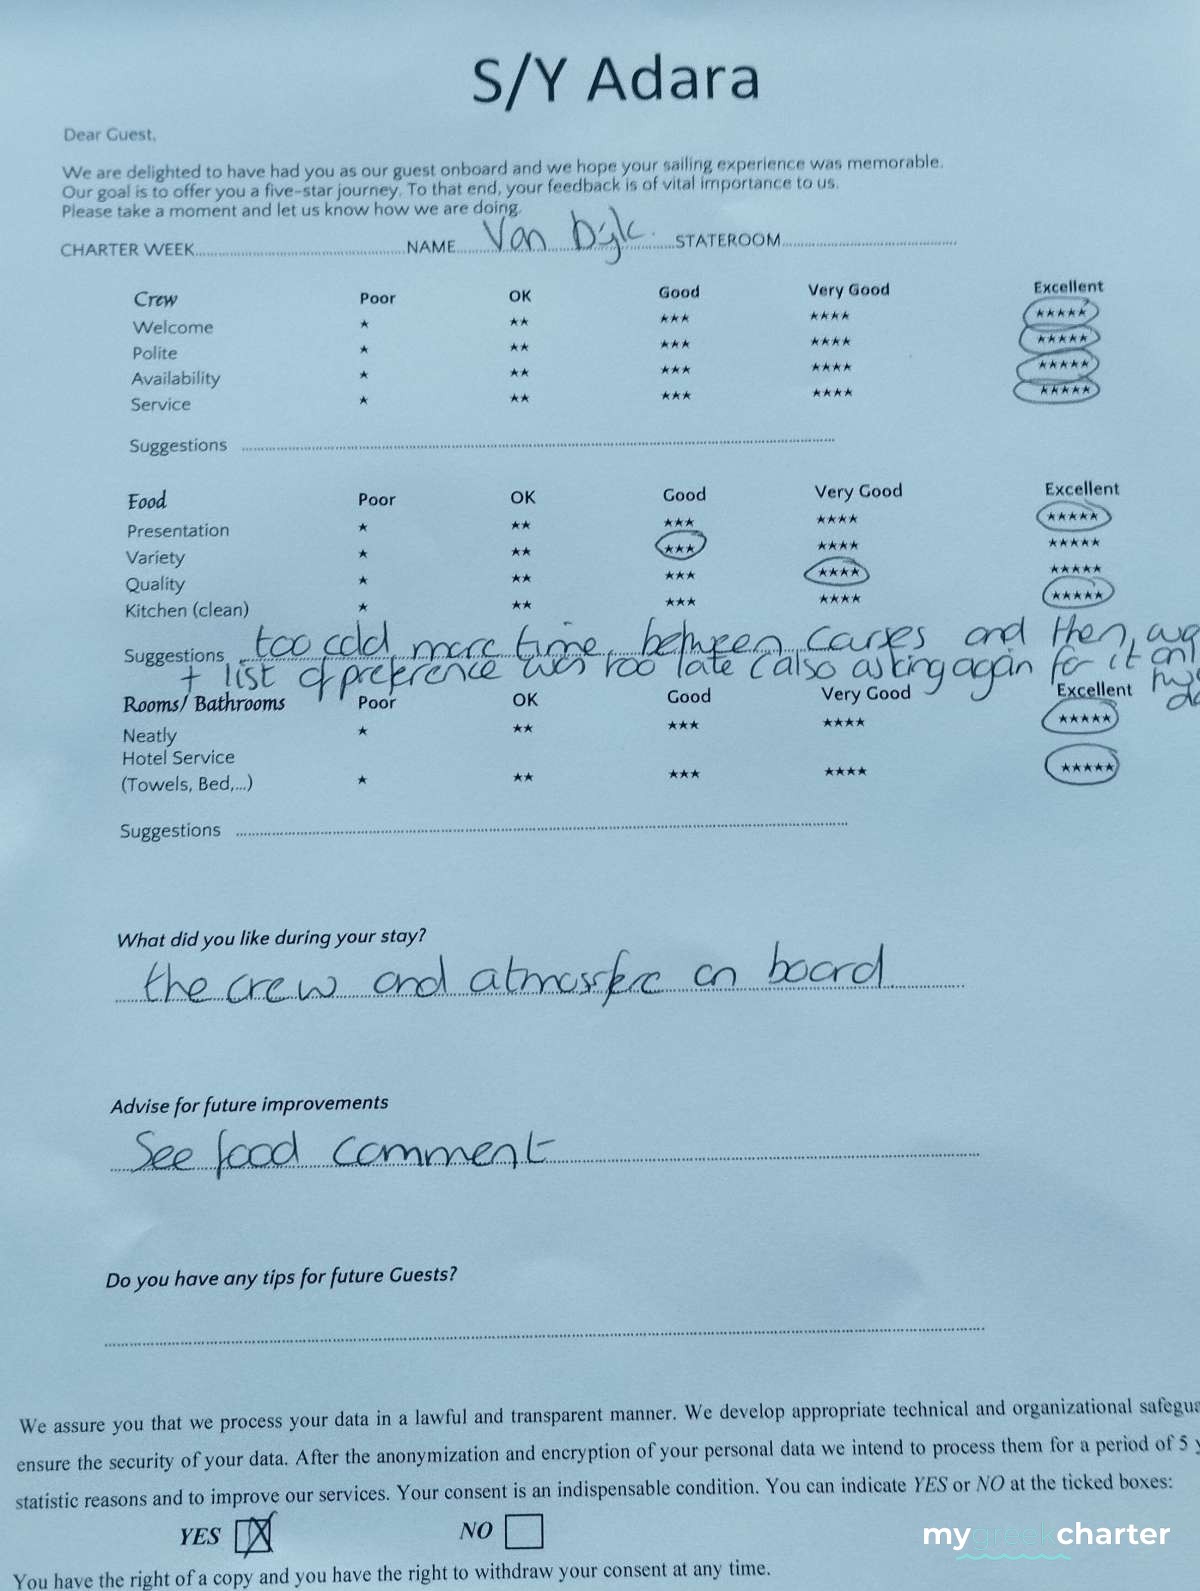 S/Y Adara
Dear Guest,
We are delighted to have had you as our guest onboard and we hope your sailing experience was memorable.
Our goal is to offer you a five-star journey. To that end, your feedback is of vital importance to us.
Please take a moment and let us know how we are doing.
CHARTER WEEK NAME Van Dijk. STATEROOM
Crew Poor OK Good Very Good Excellent
Welcome ★ ★★ ★★★ ★★★★ ★★★★★
Polite ★ ★★ ★★★ ★★★★ ★★★★★
Availability ★ ★★ ★★★ ★★★★ ★★★★★
Service ★ ★★ ★★★ ★★★★ ★★★★★
Suggestions
Food Poor OK Good Very Good Excellent
Presentation ★ ★★ ★★★ ★★★★ ★★★★★
Variety ★ ★★ ★★★ ★★★★ ★★★★★
Quality ★ ★★ ★★★ ★★★★ ★★★★★
Kitchen (clean) ★ ★★ ★★★ ★★★★ ★★★★★
Suggestions too cold, more time between courses and then
+ list of preference was too late (also asking again for it
Rooms/ Bathrooms Poor OK Good Very Good Excellent
Neatly ★ ★★ ★★★ ★★★★ ★★★★★
Hotel Service
(Towels, Bed,...) ★ ★★ ★★★ ★★★★ ★★★★★
Suggestions
What did you like during your stay?
the crew and on board
Advise for future improvements
See food comment
Do you have any tips for future Guests?
We assure you that we process your data in a lawful and transparent manner. We develop appropriate technical and organizational
ensure the security of your data. After the anonymization and encryption of your personal data we intend to process them for a period of 5
statistic reasons and to improve our services. Your consent is an indispensable condition. You can indicate YES or NO at the ticked boxes:
YES X NO
You have the right of a copy and you have the right to withdraw your consent at any time.
mygreekcharter